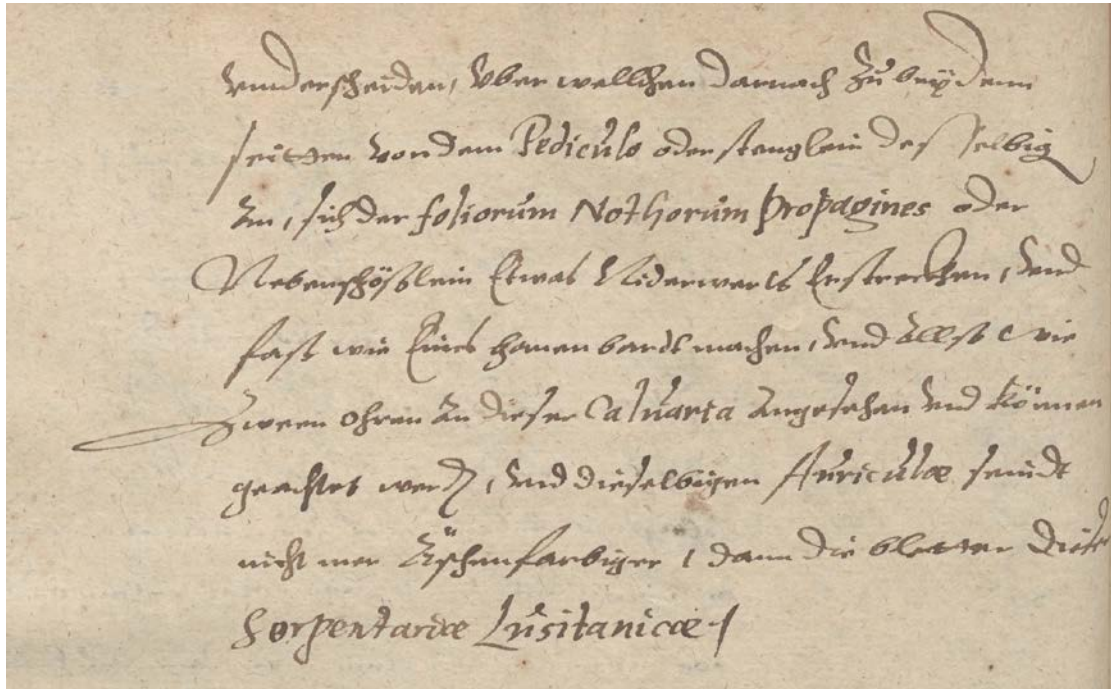 vnderscheiden, vber wellchen darnach zu beydenn
seitten von dem Pediculo oder stenglein des selbig
en, sich der foliorum Nothorum propagines oder
Nebenschößlein Etwas Niderwerts Erstrecken, vnd
fast wie Eines hanen bardt machen, vnd allso wie
zween ohren an dieser Caluaria angesehen vnd können
geachtet werden, vnd dieselbigen Auriculæ seindt
nicht mer Äschenfarbiger, dann die bletter dieser
Serpentariæ Lusitanicæ